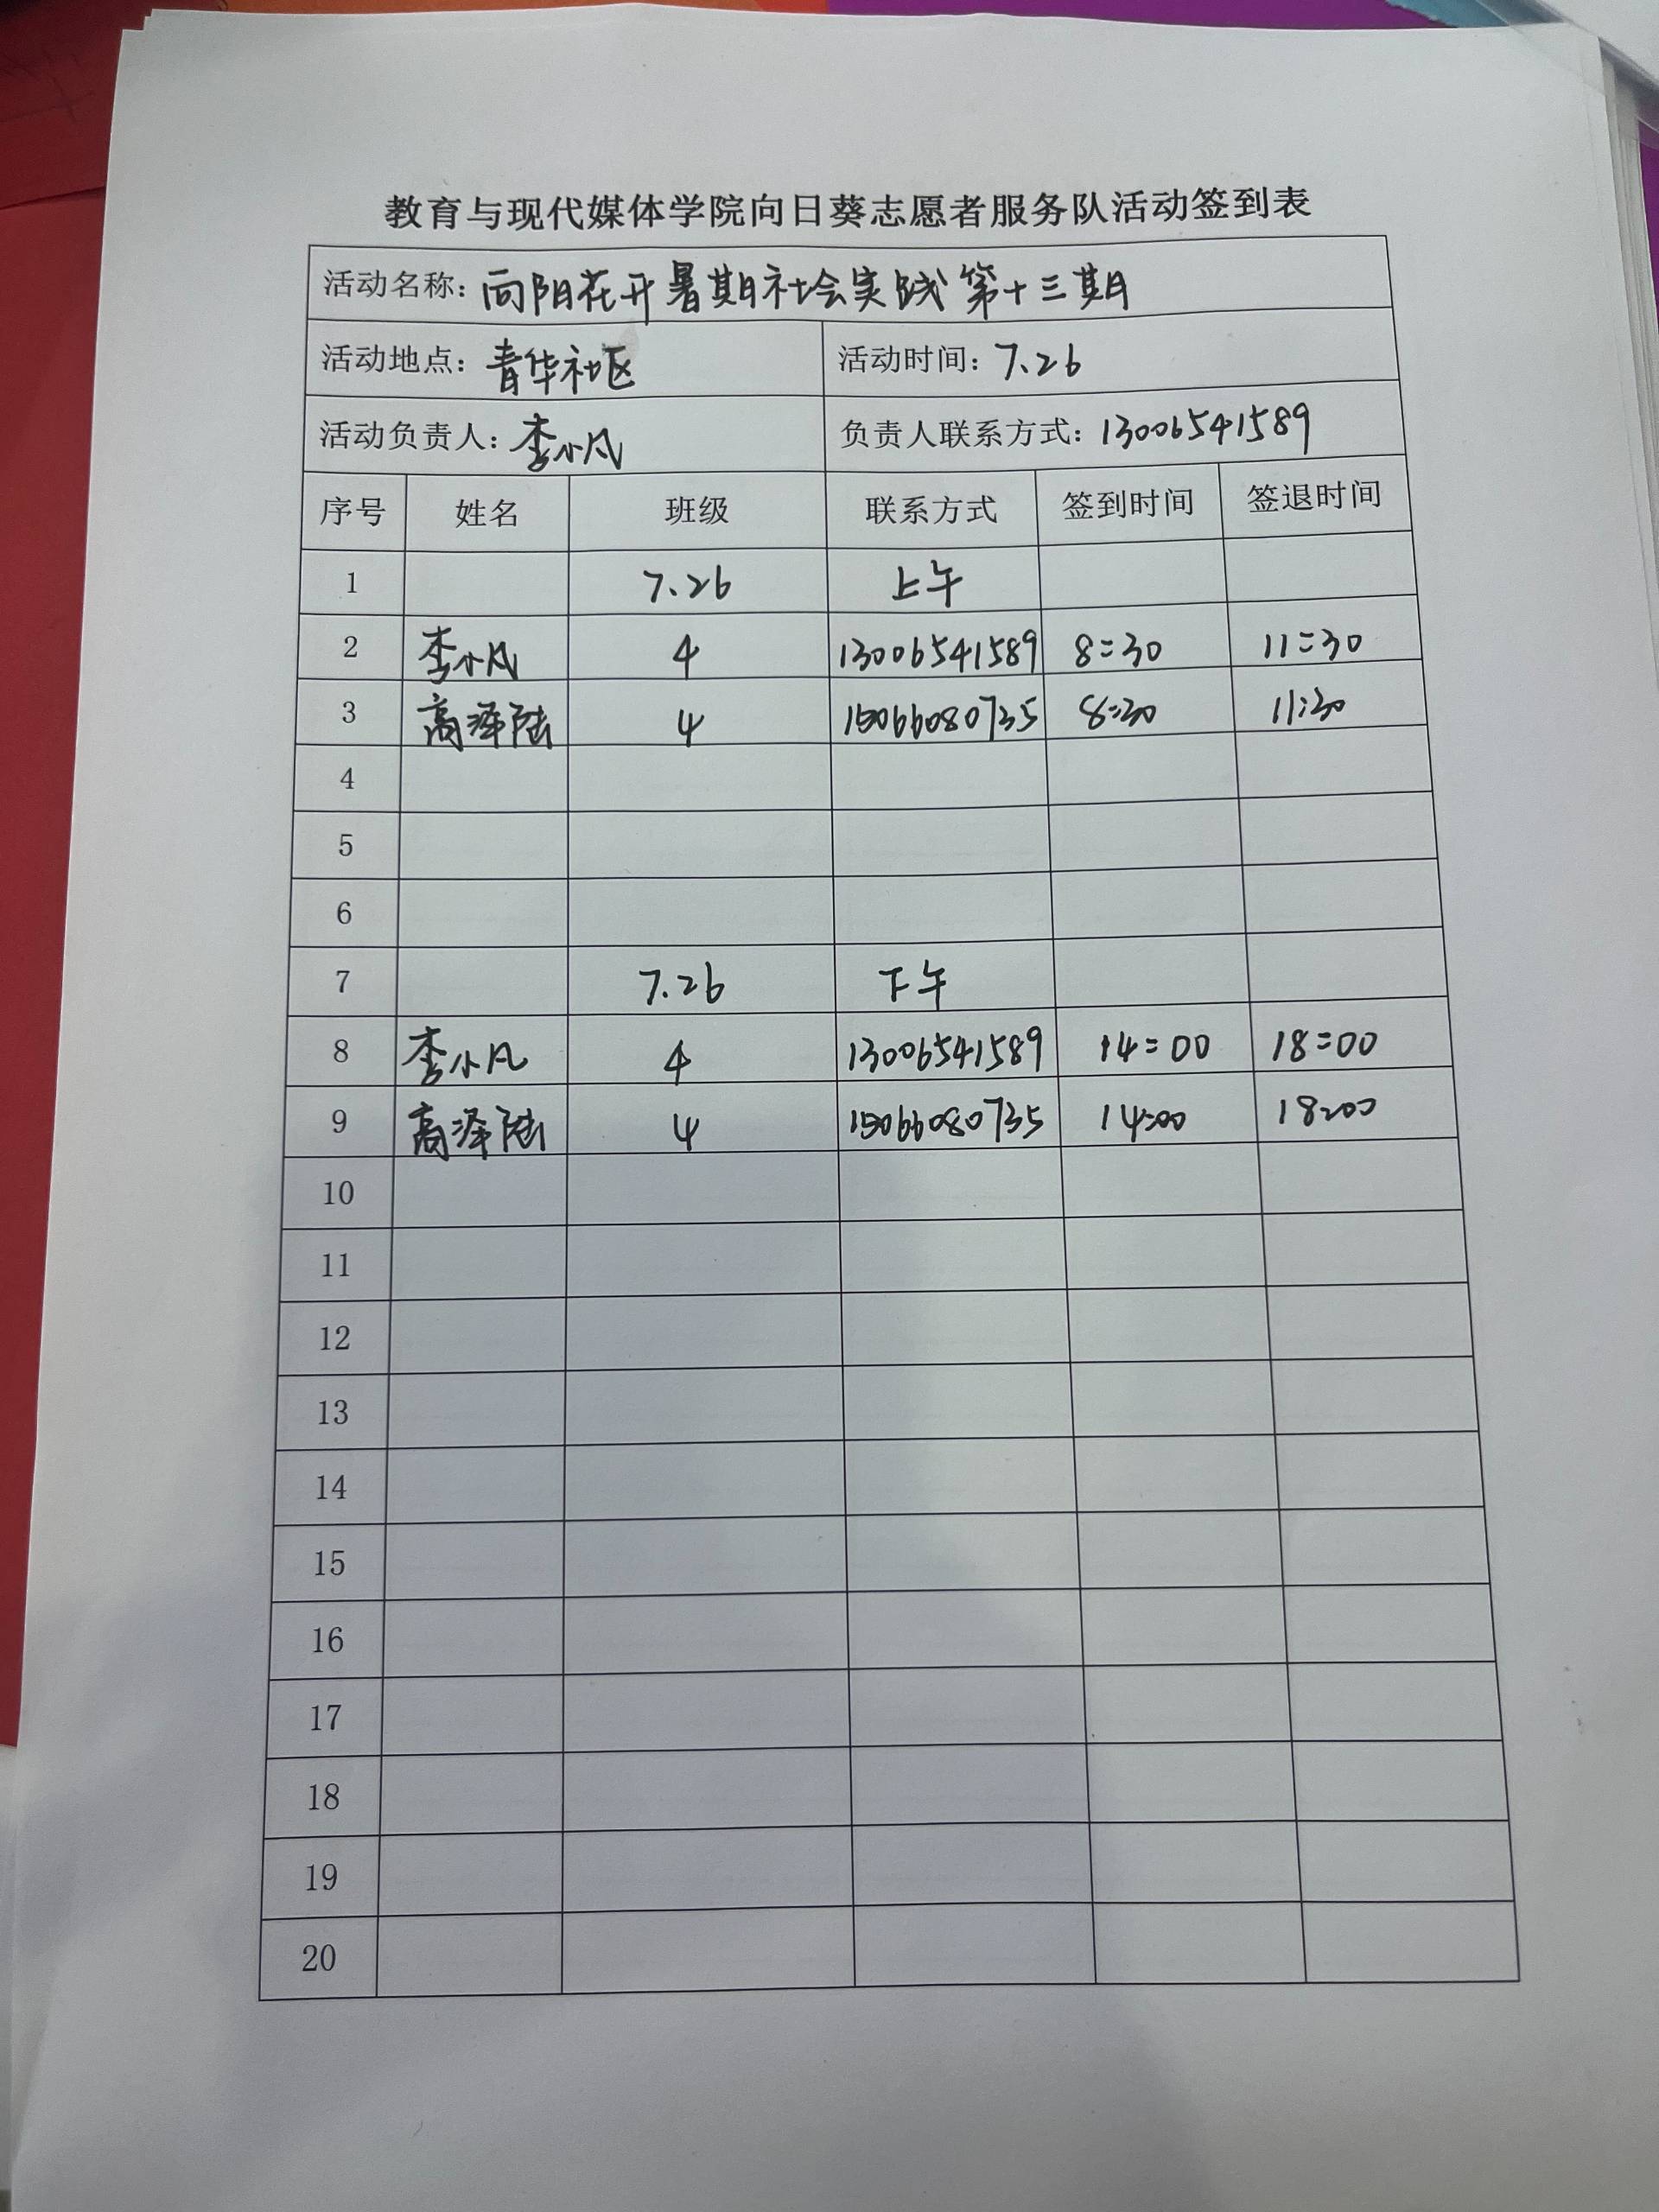 教育与现代媒体学院向日葵志愿者服务队活动签到表
活动名称：向阳花开暑期社会实践第十三期
活动地点：青华社区 活动时间：7.26
活动负责人：李小凡 负责人联系方式：13006541589
序号 姓名 班级 联系方式 签到时间 签退时间
1 7.26 上午
2 李小凡 4 13006541589 8:30 11:30
3 高泽陆 4 15066080735 8:30 11:30
4
5
6
7 7.26 下午
8 李小凡 4 13006541589 14:00 18:00
9 高泽陆 4 15066080735 14:00 18:00
10
11
12
13
14
15
16
17
18
19
20